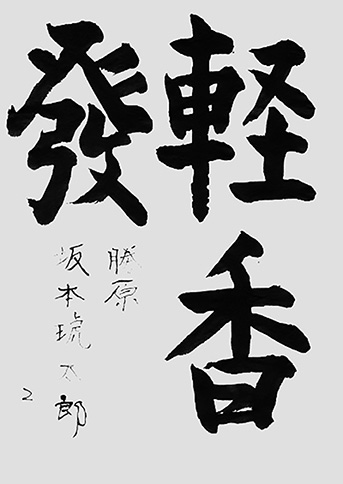 軽香
發
藤原
坂本琥太郎
2